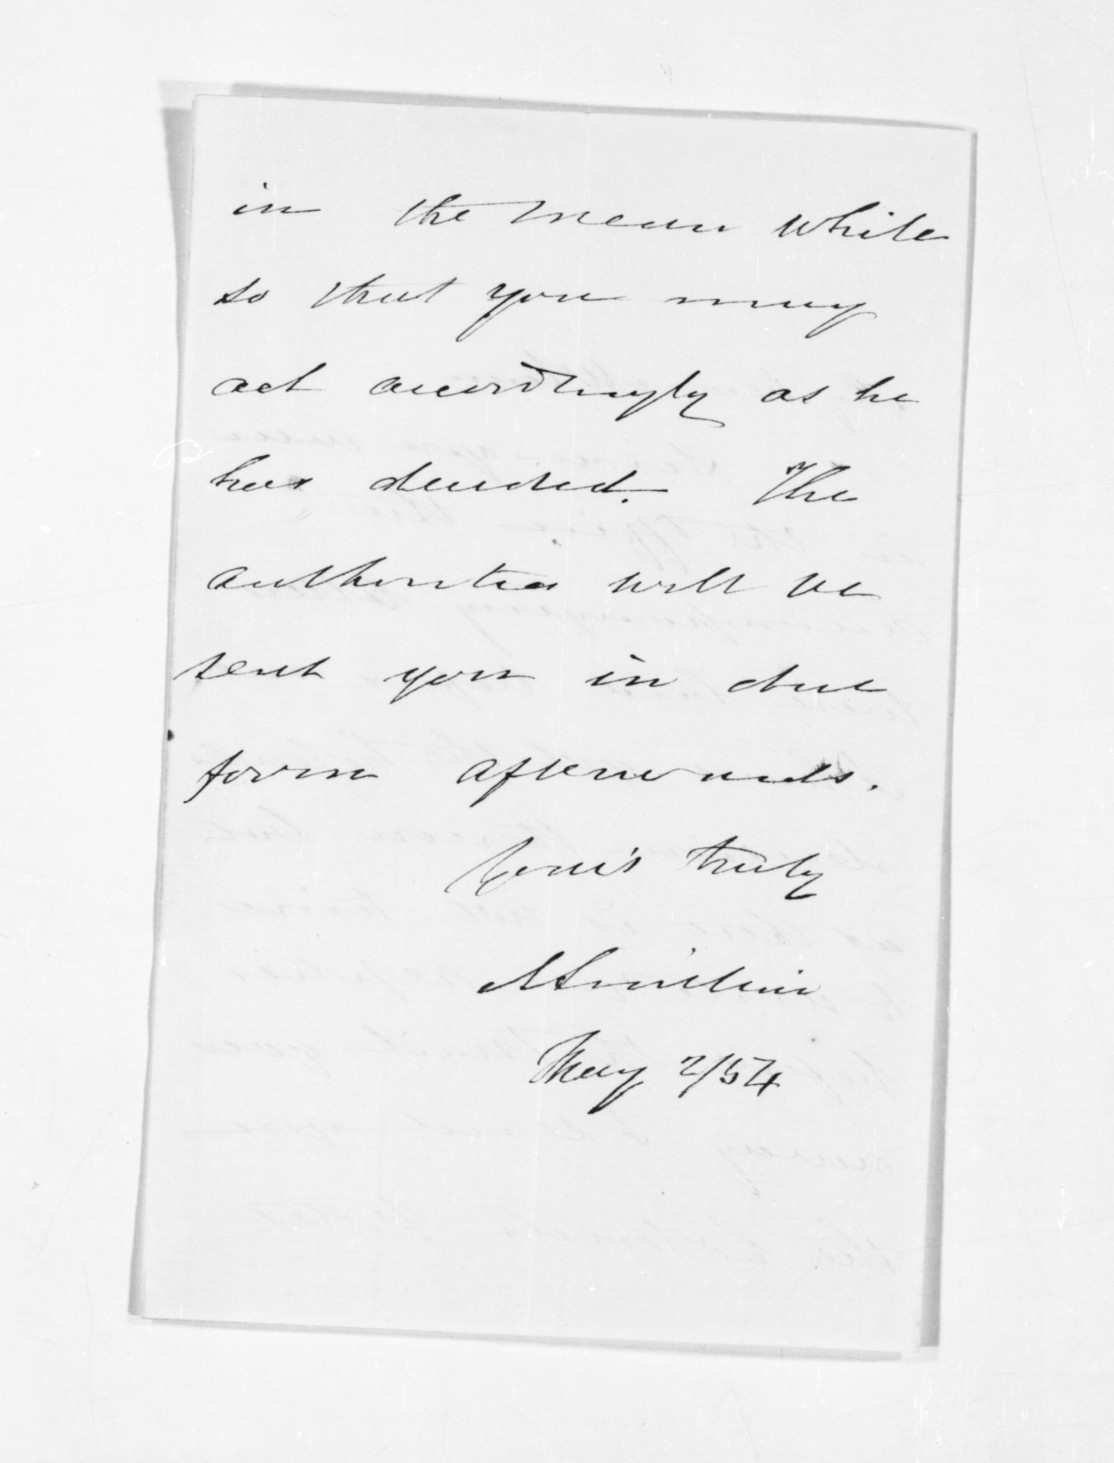 in the mean while
so that you may
act accordingly as he
has decided. The
authorities will be
sent you in due
form afterwards.
Yours truly
ASinclair
May 2/54